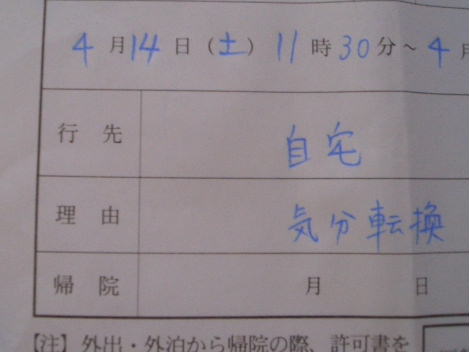 4月14日（土）11時30分～4月
行先 自宅
理由 気分転換
帰院 月 日
【注】外出・外泊から帰院の際、許可書を